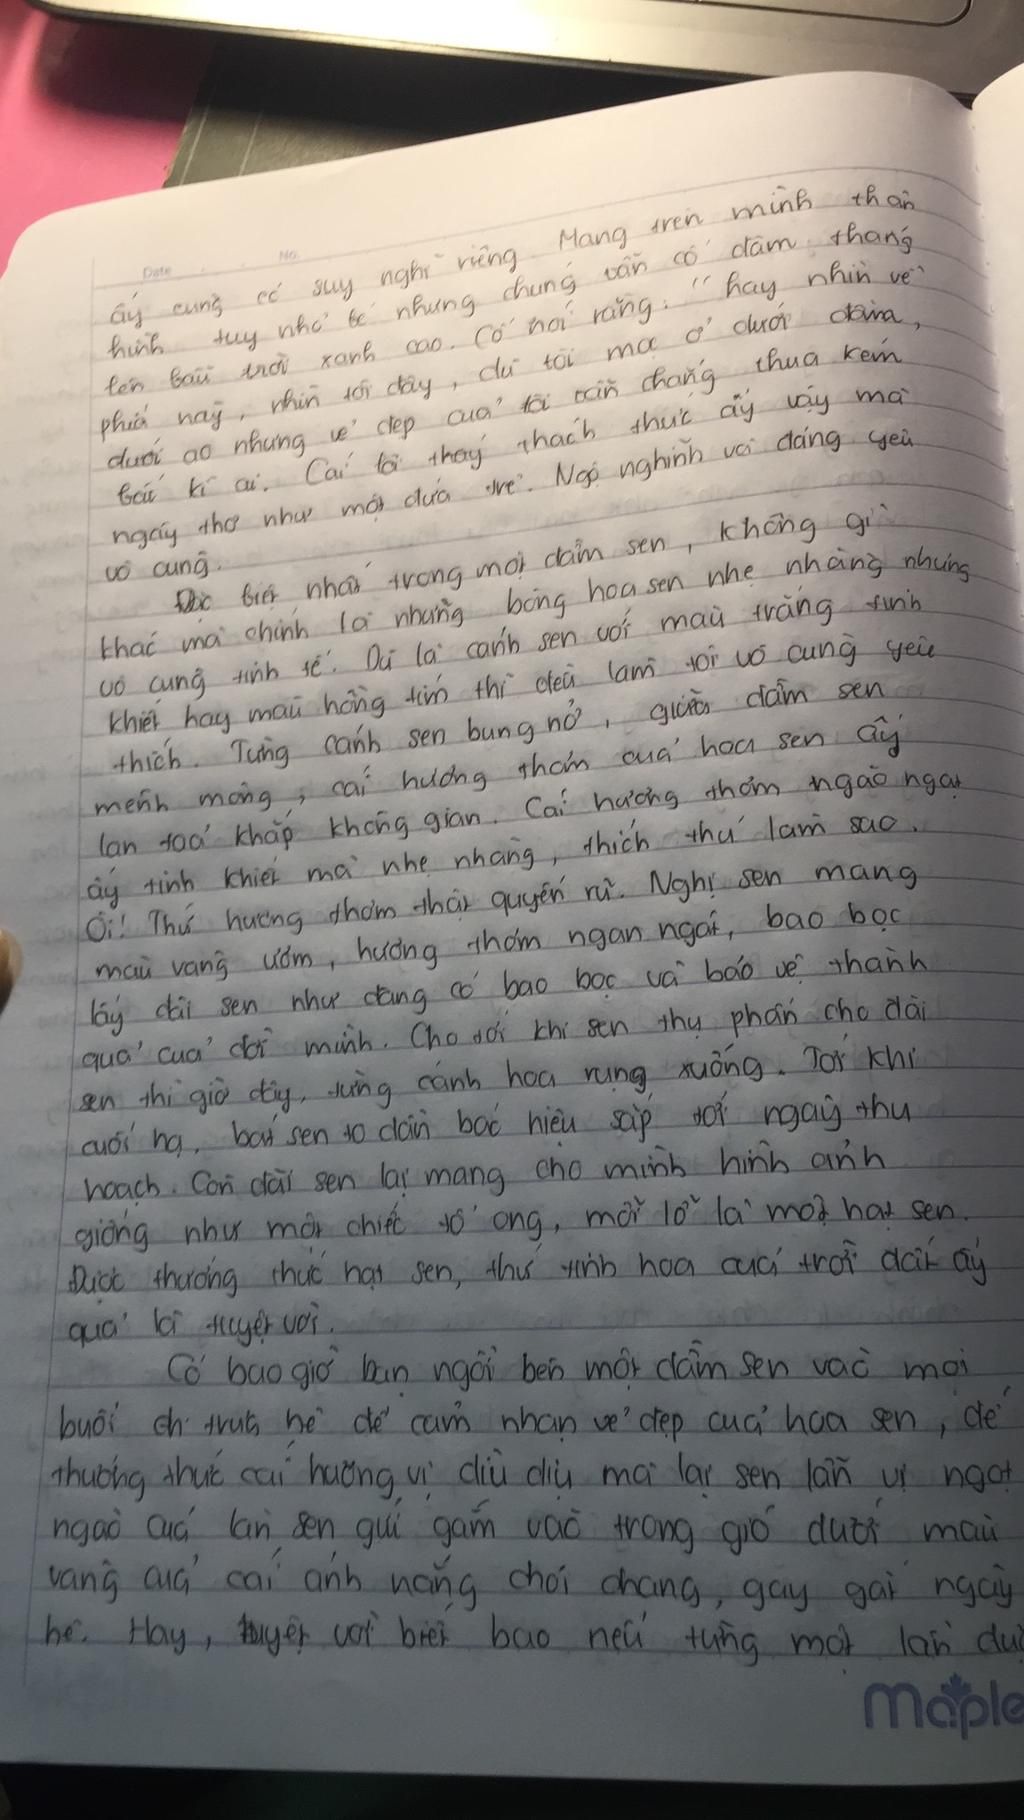 Date No.
ấy cũng có suy nghĩ riêng. Mang trên mình thân
hình tuy nhỏ bé nhưng chúng vẫn có dám thang
lên bầu trời xanh cao. Cố nói rằng: "hãy nhìn về
phía này, nhìn tới đây, dù tôi mọc ở dưới đầm,
dưới ao nhưng vẻ đẹp của tôi vẫn chẳng thua kém
bất kì ai. Cái tôi thấy thách thức ấy vậy mà
ngây thơ như một đứa trẻ. Ngộ nghĩnh và đáng yêu
vô cùng.
Đặc biệt nhất trong một đầm sen, không gì
khác mà chính là những bông hoa sen nhẹ nhàng nhưng
vô cùng tinh tế. Dù là cánh sen với màu trắng tinh
khiết hay màu hồng tím thì đều làm tôi vô cùng yêu
thích. Từng cánh sen bung nở, giữa đầm sen
mênh mông, cái hương thơm của hoa sen ấy
lan toả khắp không gian. Cái hương thơm ngào ngạt
ấy tinh khiết mà nhẹ nhàng, thích thú làm sao.
Ôi! Thứ hương thơm thật quyến rũ. Nghị sen mang
màu vàng ươm, hương thơm ngan ngát, bao bọc
lấy đài sen như đang cố bao bọc và bảo vệ thành
quả của đời mình. Cho tới khi sen thụ phấn cho đài
sen thì giờ đây, từng cánh hoa rụng xuống. Tới khi
cuối hạ, bát sen to dần báo hiệu sắp tới ngày thu
hoạch. Còn đài sen lại mang cho mình hình ảnh
giống như một chiếc tổ ong, mỗi lỗ là một hạt sen.
Được thưởng thức hạt sen, thứ tinh hoa của trời đất ấy
quả là tuyệt vời.
Có bao giờ bạn ngồi bên một đầm sen vào mọi
buổi trưa hè để cảm nhận vẻ đẹp của hoa sen, để
thưởng thức cái hương vị dìu dịu mà lại sen lẫn vị ngọt
ngào của làn sen gửi gắm vào trong gió dưới màu
vàng của cái ánh nắng chói chang, gay gắt ngày
hè. Hay, tuyệt vời biết bao nếu từng một lần
maple